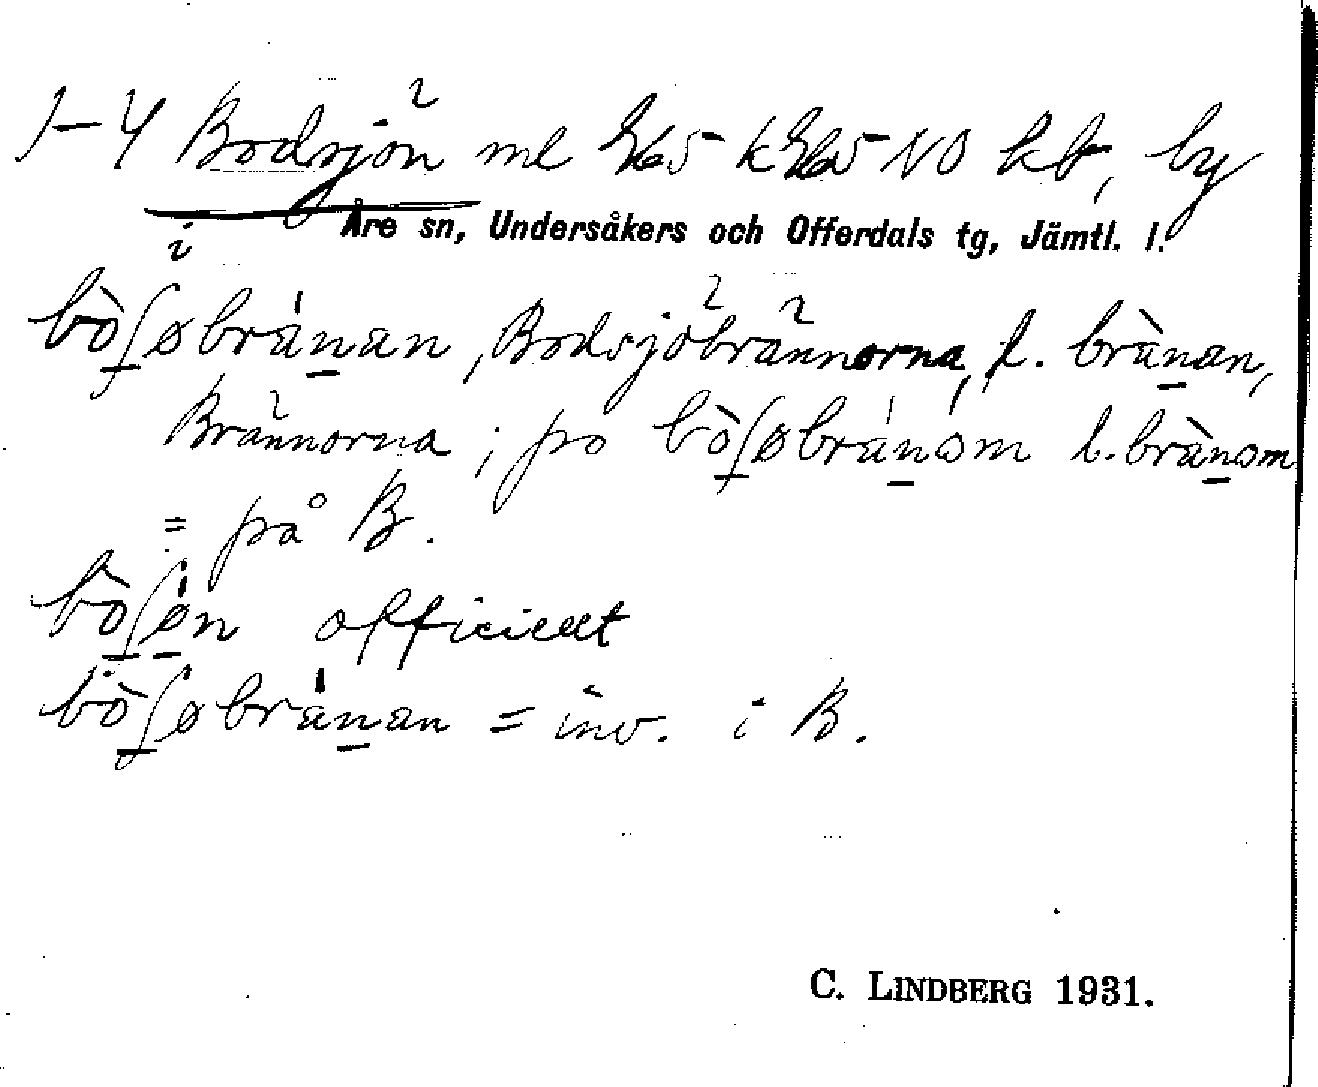 1-4 Bodsjön ml NO kb, by
i Åre sn, Undersåkers och Offerdals tg, Jämtl. l.
bòʃøbránan, Bodsjöbrännorna, l. brànan,
Brännorna; po bòʃøbránom l. brànom
= på B.
bòʃøn officiellt
bòʃøbránan = inv. i B.
C. LINDBERG 1931.